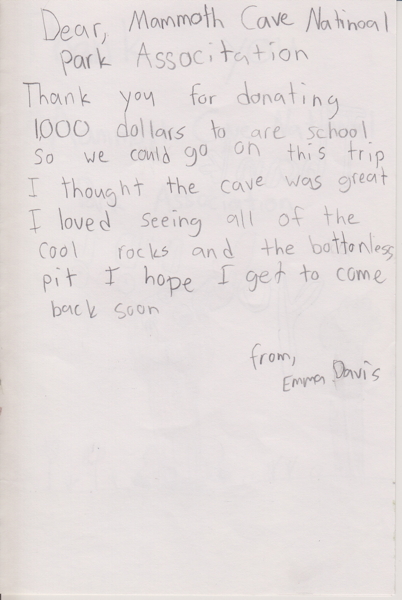 Dear, Mammoth Cave Natinoal
Park Associtation
Thank you for donating
1000 dollars to are school
So we could go on this trip
I thought the cave was great
I loved seeing all of the
cool rocks and the bottonless
pit I hope I get to come
back soon
from,
Emma Davis